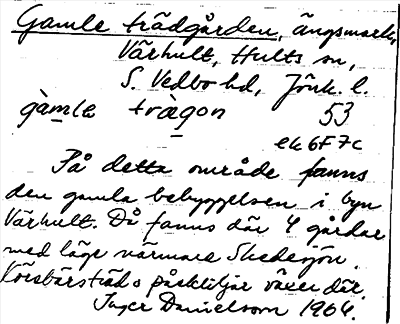 Gamle trädgården, ängsmark,
Värhult, Hults sn,
S. Vedbo hd, Jönk. l.
gàmle tràgon 53
ek 6F7c
På detta område fanns
den gamla bebyggelsen i byn
Värhult. Då fanns där 4 gårdar
med läge närmare Skedesjön.
Körsbärsträd o påskliljor växer där.
Inger Danielsson 1964.